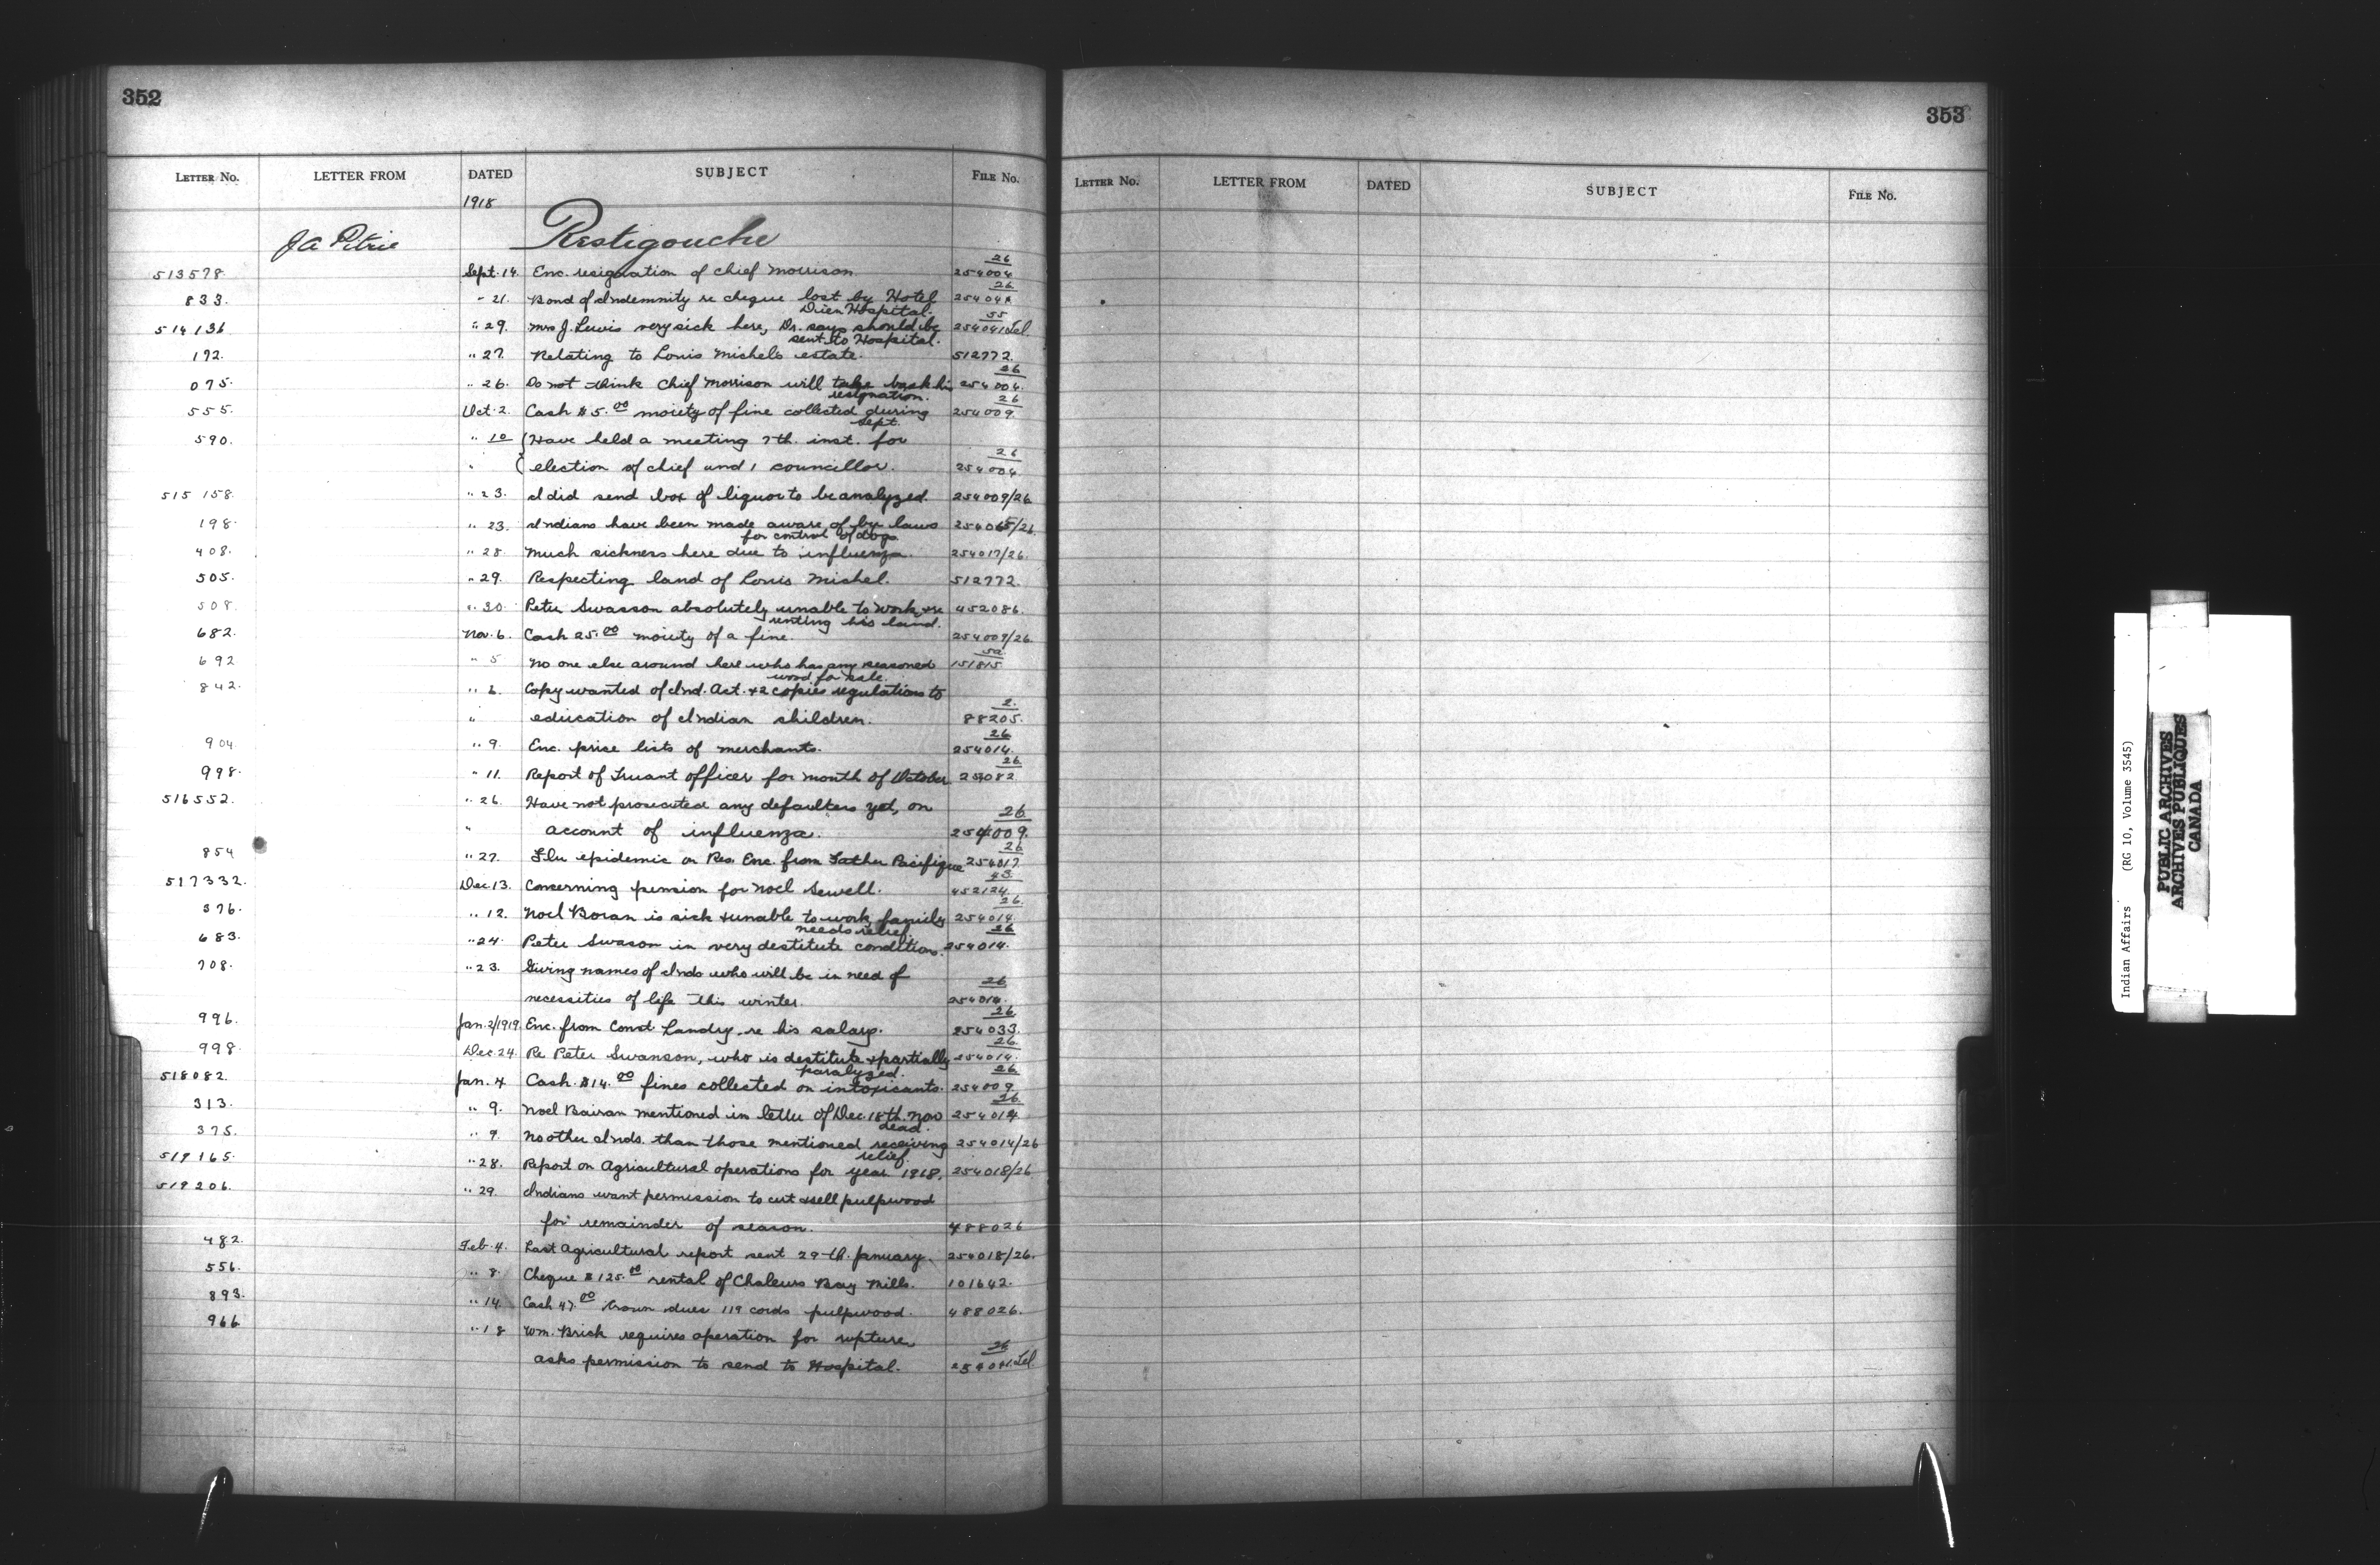 352
LETTER No. LETTER FROM DATED SUBJECT FILE No.
1918
J A Pitrie Restigouche
513578. Sept. 14. Enc. resignation of chief Morrison 254004/26
833. " 21. Bond of Indemnity re cheque lost by Hotel 26
Dieu Hospital.
514136 " 29. Mrs J. Lewis very sick here, Dr. says should be 254041/55 Tel.
sent to Hospital.
192. " 27. Relating to Louis Michels estate. 512772.
075. " 26. Do not think Chief Morrison will take back his 254004./26
resignation.
555. Oct. 2. Cash $5.00 moiety of fine collected during 254009./26
Sept.
590. " 10 (Have held a meeting 7th. inst. for
" (election of chief and 1 councillor. 254004/26
515158. " 23. I did send box of liquor to be analyzed. 254009/26
198. " 23. Indians have been made aware of by laws 254065/26.
for control of dogs
408. " 28. Much sickness here due to influenza. 254017/26.
505. " 29. Respecting land of Louis Michel. 512772.
508. " 30. Peter Swasson absolutely unable to work & re 452086.
renting his land.
682. Nov. 6. Cash 25.00 moiety of a fine. 254009/26.
692 " 5 No one else around here who has any seasoned 151815
wood for sale.
842. " 6. Copy wanted of Ind. Act. & 2 copies regulations to
" education of Indian children. 88205./2.
904. " 9. Enc. price lists of merchants. 254014./26
998. " 11. Report of Truant officer for month of October 26
516552. " 26. Have not prosecuted any defaulters yet, on
" account of influenza. 254009./26
854 " 27. Flu epidemic on Res. Enc. from Father Pacifique 254017./26
517332. Dec. 13. Concerning pension for Noel Sewell. 452124/43.
376. " 12. Noel Boran is sick & unable to work, family 254014./26.
needs relief
683. " 24. Peter Swason in very destitute condition. 254014./26
708. " 23. Giving names of Inds who will be in need of
necessities of life this winter. 254014./26
996. Jan. 2/1919 Enc. from Const. Landry re his salary. 254033./26
998. Dec. 24. Re Peter Swanson, who is destitute & partially 254014./26.
paralyzed.
518082. Jan. 4 Cash $14.00 fines collected on intoxicants. 254009/26
313. " 9. Noel Bairan mentioned in letter of Dec. 18th. now 254014/26
dead.
375. " 9. No other Inds. than those mentioned receiving 254014/26
relief.
519165. " 28. Report on Agricultural operations for year 1918. 254018/26
519206. " 29. Indians want permission to cut & sell pulpwood
for remainder of season. 488026
482. Feb. 4. Last Agricultural report sent 29th. January. 254018/26.
556. " 8. Cheque $125.00 rental of Chaleurs Bay Mills. 101642.
893. " 14. Cash 47.00 Crown dues 119 cords pulpwood. 488026.
966. " 18 Wm. Brick requires operation for rupture
asks permission to send to Hospital. 254041/26 Tel.
353
LETTER No. LETTER FROM DATED SUBJECT FILE No.
Indian Affairs (RG 10, Volume 3545)
PUBLIC ARCHIVES
ARCHIVES PUBLIQUES
CANADA